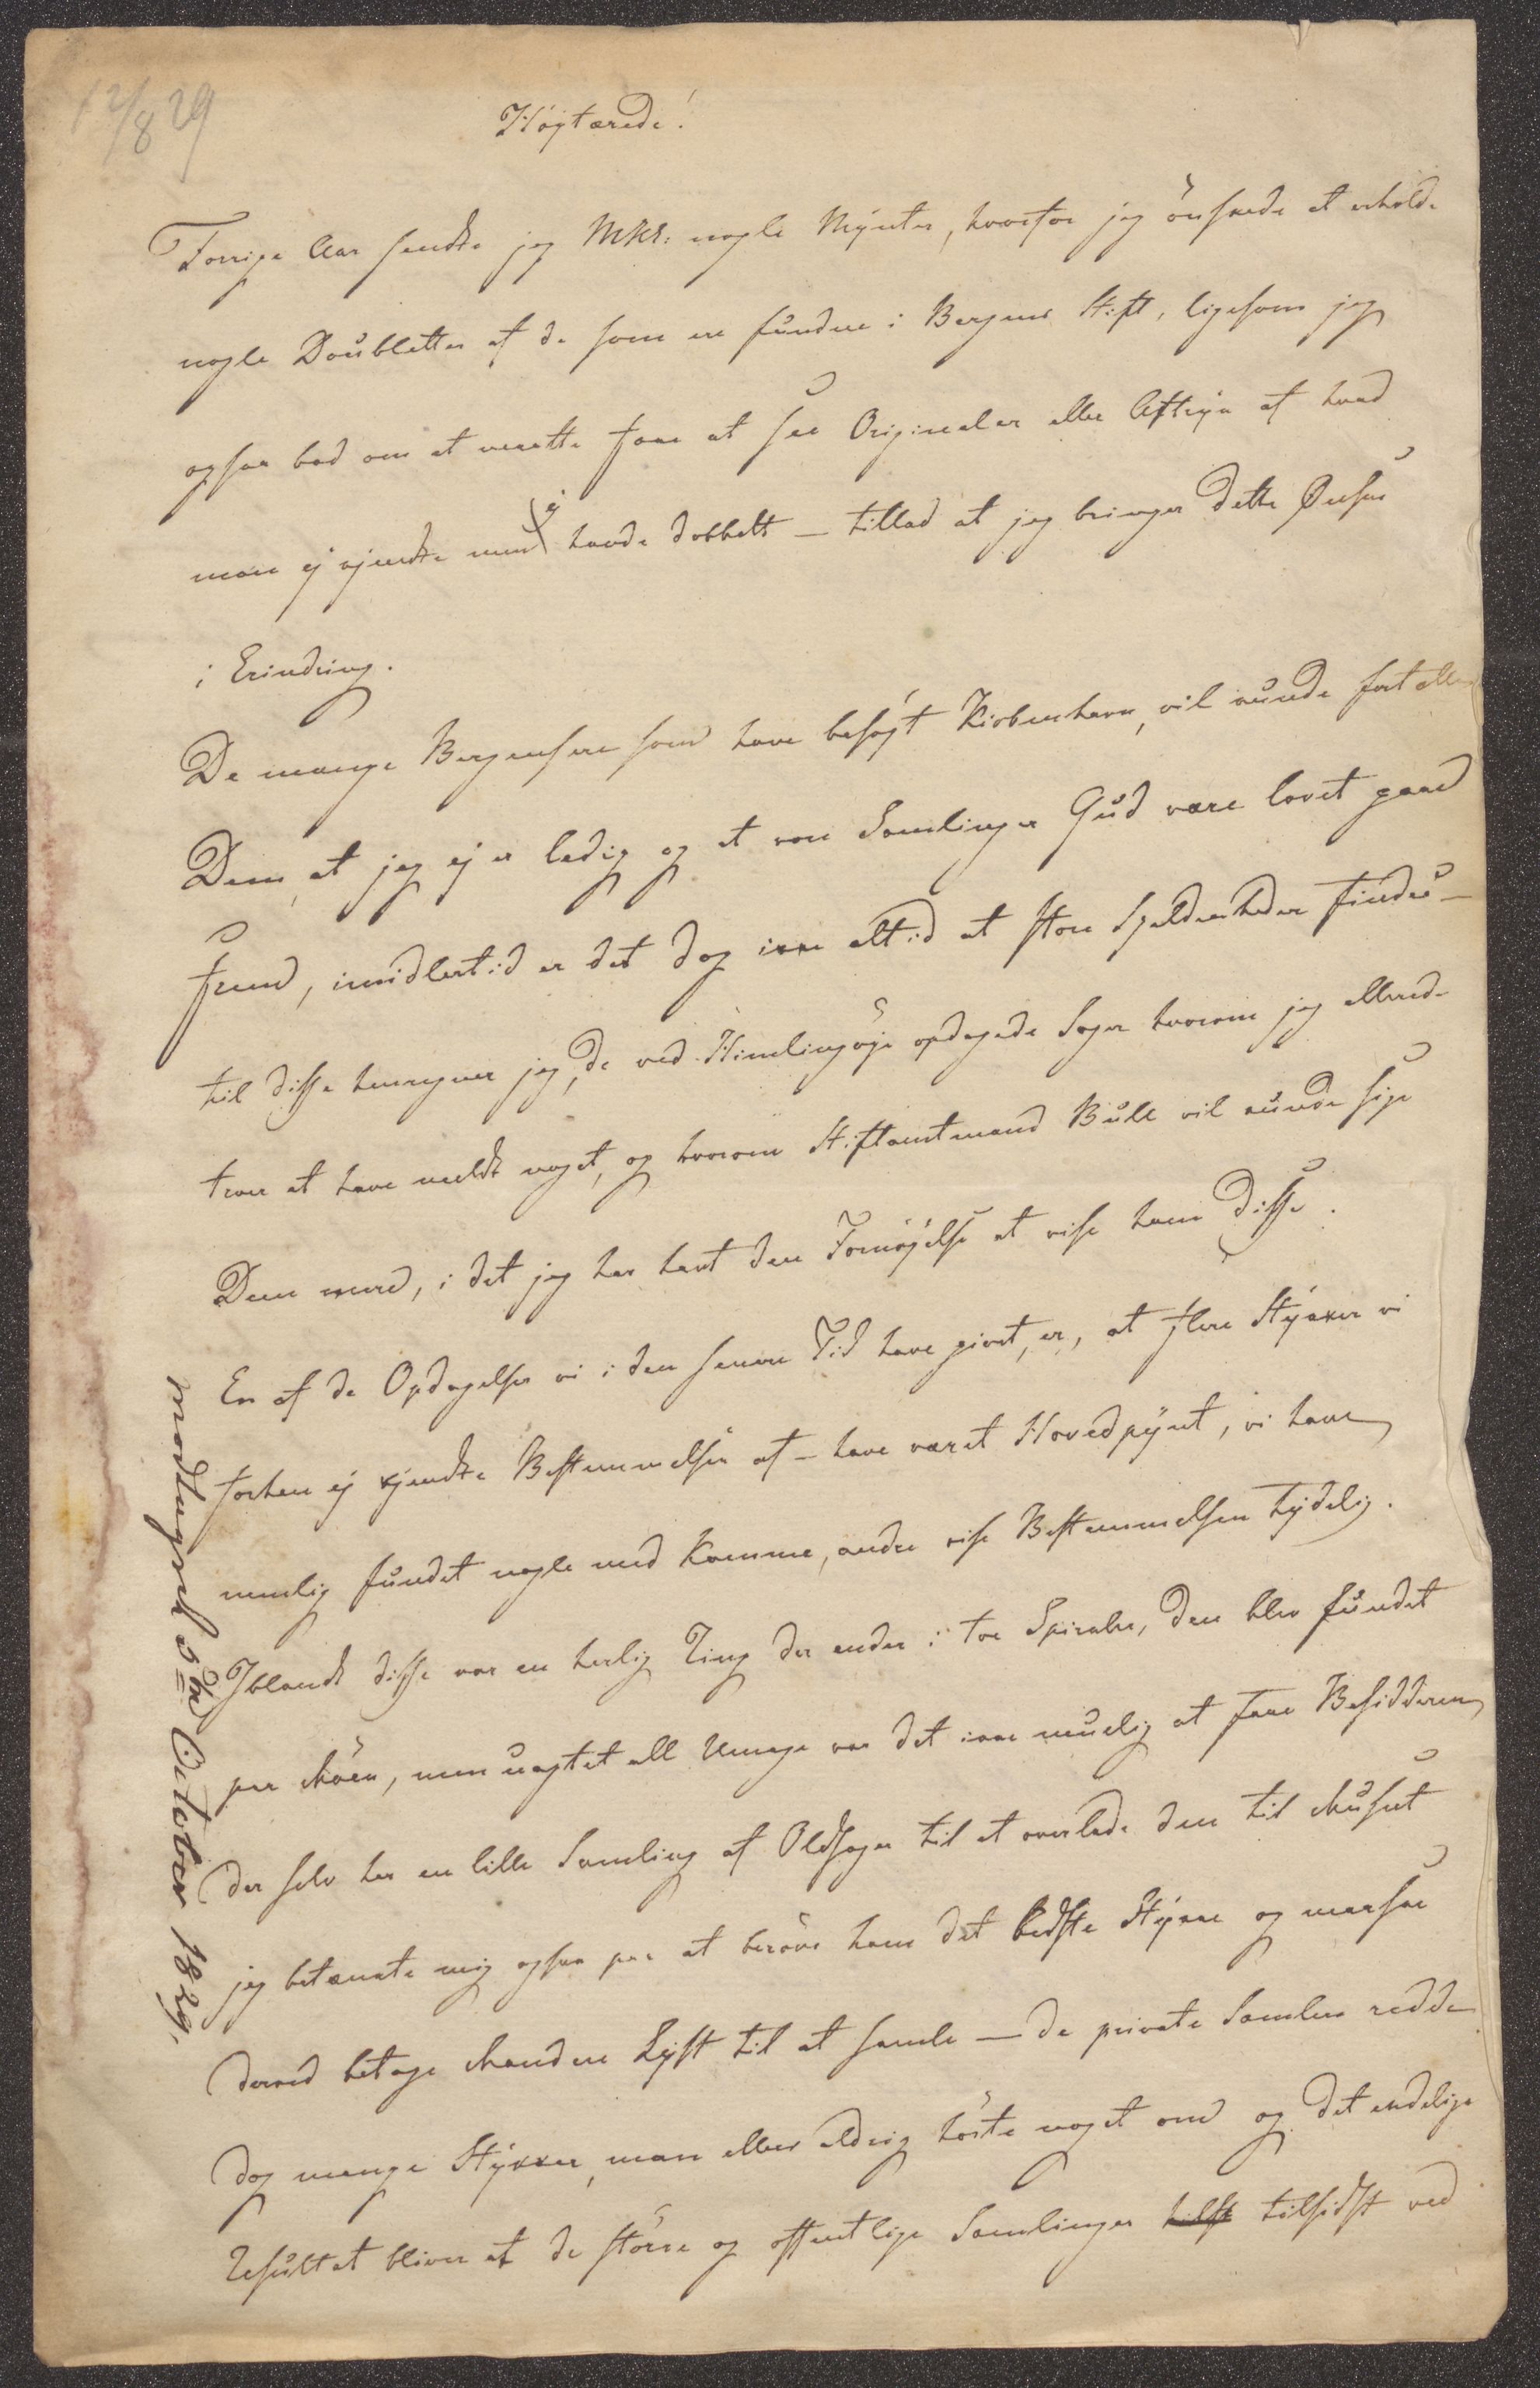 12/8 29
Høgtærede!
Forrige Aar sendte jeg MKS: nogle Mynter, hvorfor jeg önskede at erholde
nogle Doubletter af de som ere fundne i Bergens Stift, ligesom jeg
ogsaa bad om at maatte faae at see Originaler eller Aftryk af hvad
man ej kjendte men ej havde dobbelt – tillad at jeg bringer dette Ønske
i Erindring.
De mange Bergensere som have besøgt Kiøbenhavn, vil kunde fortælle
Dem, at jeg ej er ledig og at vore Samlinger Gud være lovet gaae
frem, imidlertid er det dog ikke altid at store Sjeldenheder findes –
til disse henregner jeg, de ved Himlingøje opdagede Sager hvorom jeg allerede
troer at have meldt noget, og hvorom Stiftamtmand Bull vil kunde sige
Dem mere, i det jeg har havt den Fornøjelse at vise ham disse.
En af de Opdagelser vi i den senere Tid have giort, er, at flere Stykker vi
forhen ej kjendte Bestemmelsen af – have været Hovedpynt, vi have
nemlig fundet nogle med Kamme, andre vise Bestemmelsen tydelig.
Iblandt disse var en herlig Ting der ender i toe Spiraler, den blev fundet
paa Möen, men uagtet all Umage var det ikke muelig at faae Besidderen
der selv har en lille Samling af Oldsager til at overlade den til Museet
jeg betænkte mig ogsaa paa at beröve ham det bedste Stykke og maaskee
derved betage Manden Lyst til at samle – de private Samlere redde
dog mange Stykker, man ellers aldrig hörte noget om og det endelige
Resultat bliver at de större og offentlige Samlinger tilst tilsidst ved
modtaget 5te October 1829.